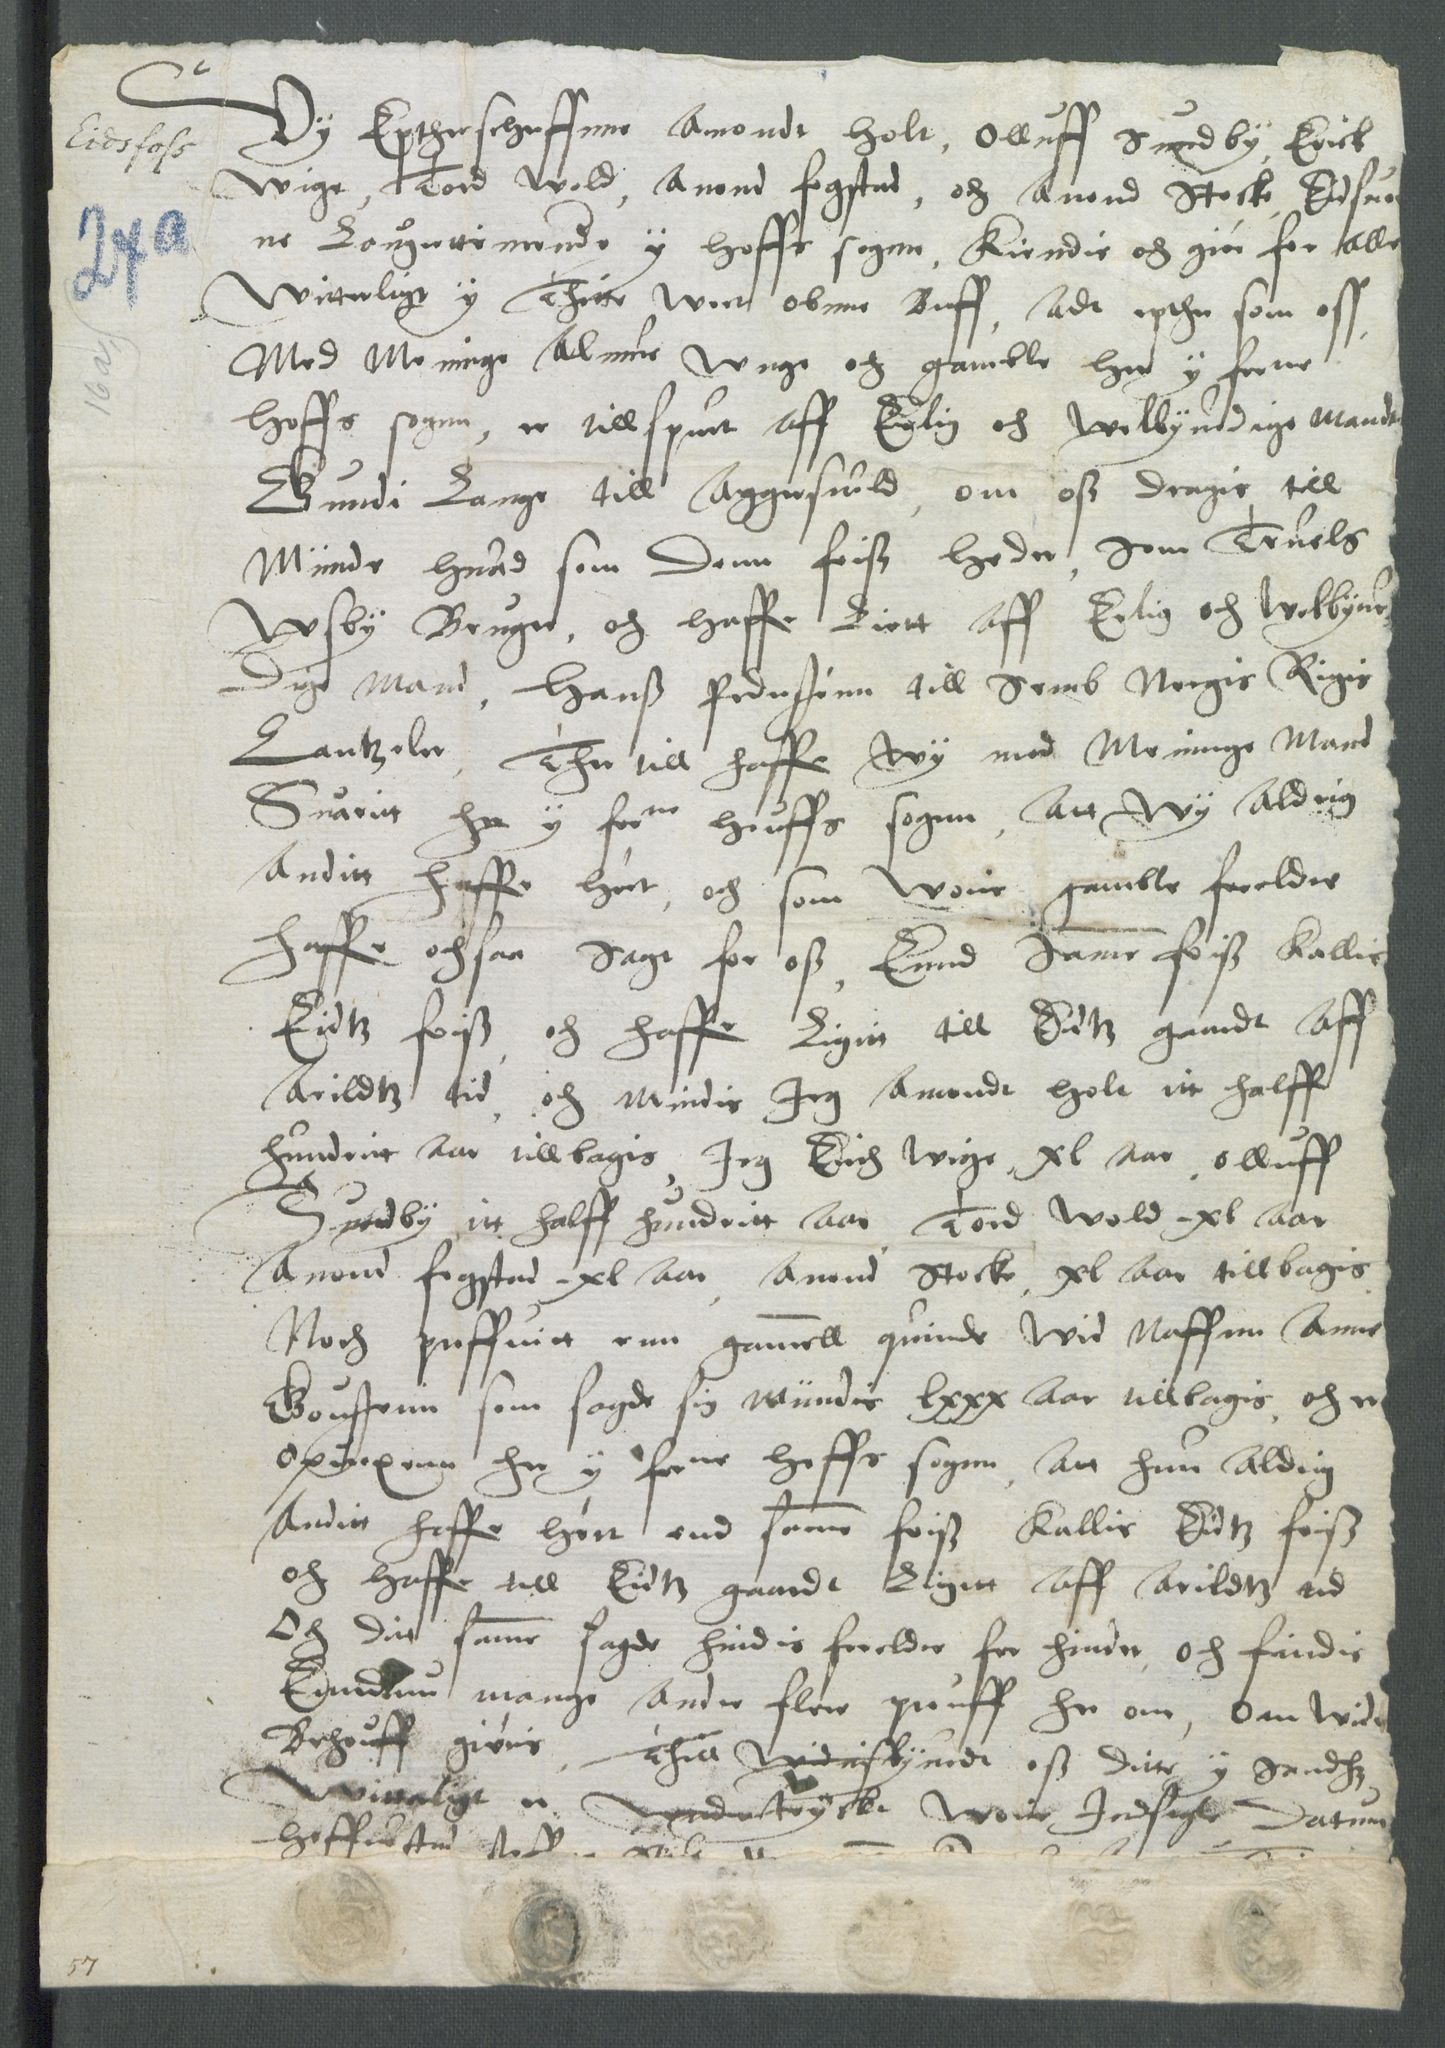 Eidsfoss
24 a
16 a)
Vÿ Eptherscreffnne Amondt Holt, Olluff Sundbÿ, Erick
Wige, Tord Wold, Anond fogstad, och Anond Stocke Edsuo
ne Laugrettimende ÿ Hoffs sognn, Kiendis och giör for alle
Witterligt ÿ Thette wort obnne Breff, Adt epther som oss
Med Meninge Almue wnge och gamble her ÿ forne
Hoffs sognn, er tillspurt aff Erlig och Welbÿrdige Mandt
Gundi Lange till Aggersuold, om oss dragis till
Minde huad som denn foss heder, som Truels
Wsbÿ Bruger, och haffe Leett aff Erlig och Welbÿr¬
dige Mand, Hanss Pederssønn till Semb Norgis Rigis
Cantzeler, Ther till haffe wÿ med Meninge Mand
Suaritt her ÿ forne Houffs sognn, Att Wÿ Aldrig
Anditt haffe hört, och som Wore gamble foreldre
haffe ochsaa sagt for oss, Ennd samme foss Kallis
Eidtz foss, och haffe Ligitt till Eidtz gaardt Aff
Arildtz tid, och Mindis Jeg Amondt Holt itt halff
hundritt aar tillbagis, Jeg Erich Wige xl aar, Olluff
Sundbÿ itt halff hundritt aar Tord Wold xl aar
Anond fogstad xl aar, Anond Stocke, xl aar tillbagis
Noch prøffuitt enn gamell quinde wid Naffnn Anne
som sagde sig Mindis lxxx aar tillbagis, och er
opuoxenn her ÿ forne Hoffs sogenn, Att hun Aldrig
Anditt haffe hört end samme foss Kallis Eidtz foss
och haffe till Eidtz gaardt Ligitt Aff Arildtz tid
Och ditt samme sagde hindis forelder for hinder, och findis
Enndnu mange Andre flere prouff her om, om wider
Behouff giøris, Till Widnisbÿrdt oss dette ÿ Sandhz
Witterligt er Wndertrÿckt Wore Indsegle Datum
57